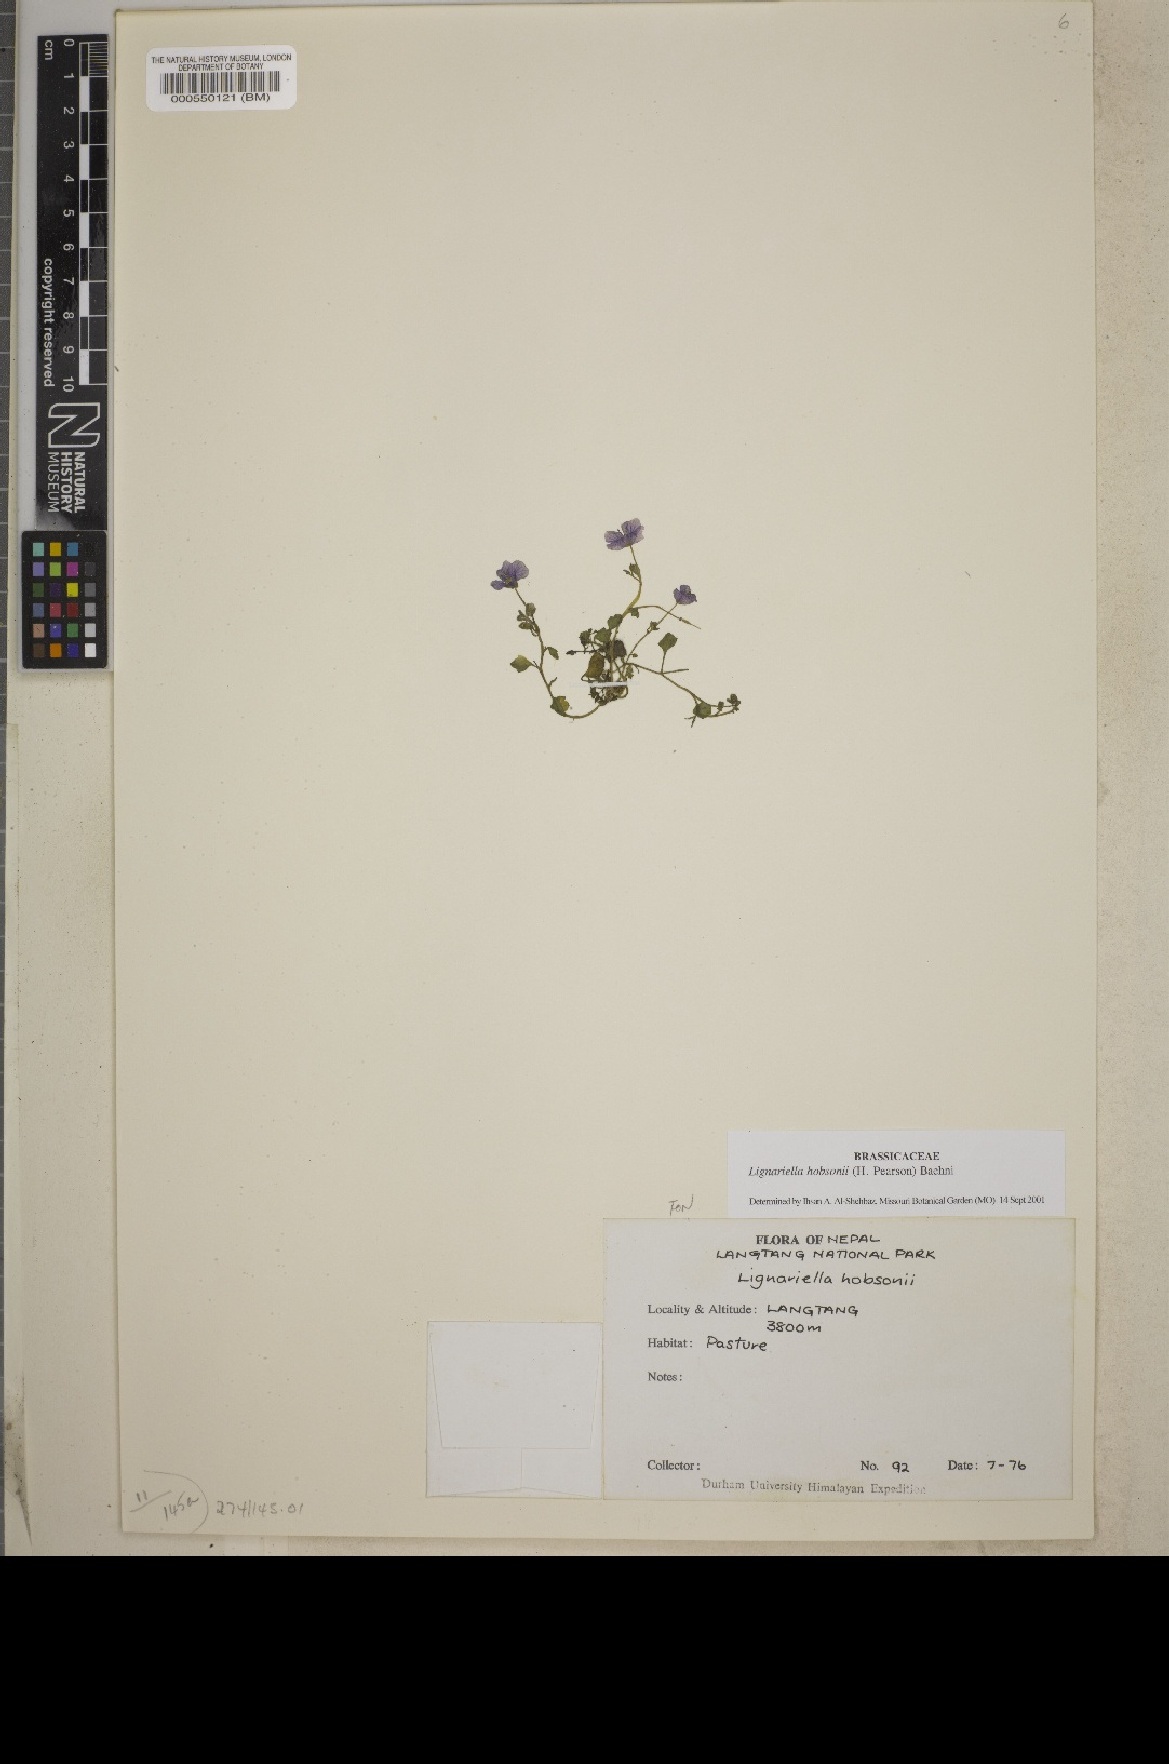 6
THE NATURAL HISTORY MUSEUM, LONDON
DEPARTMENT OF BOTANY
000550121 (BM)
cm 0 1 2 3 4 5 6 7 8 9 10
copyright reserved
NATURAL
HISTORY
MUSEUM
BRASSICACEAE
Lignariella hobsonii (H. Pearson) Baehni
Determined by Ihsan A. Al-Shehbaz, Missouri Botanical Garden (MO) 14 Sept 2001
FON
FLORA OF NEPAL
LANGTANG NATIONAL PARK
Lignariella hobsonii
Locality & Altitude: LANGTANG
3800m
Habitat: Pasture
Notes:
Collector: No. 92 Date: 7-76
Durham University Himalayan Expedition
11
274/145.01